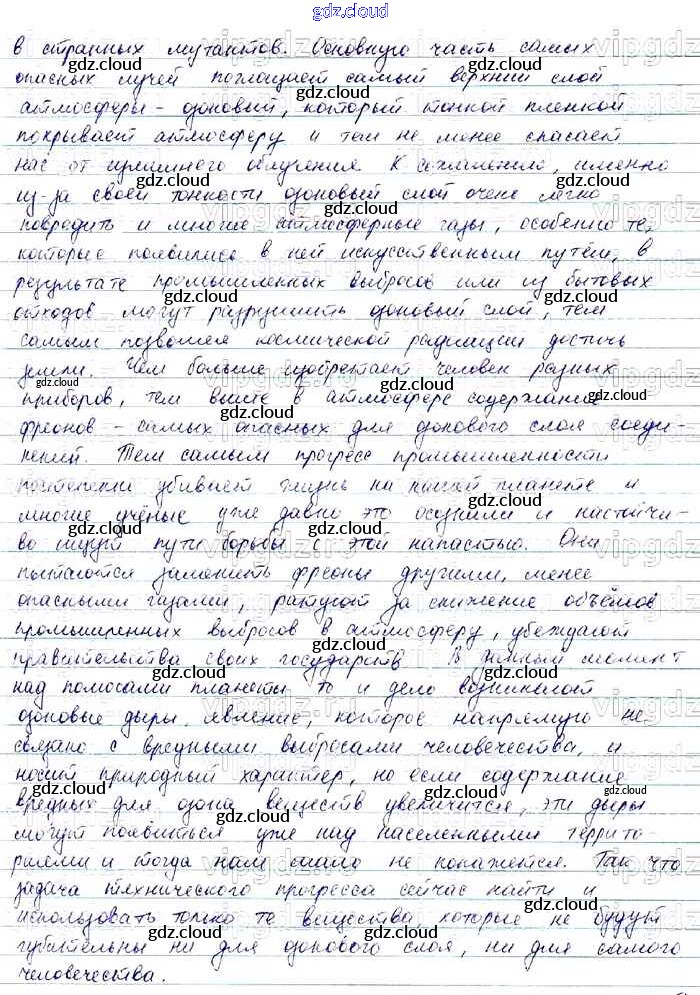 gdz.cloud
в странных мутантов. Основную часть самых
опасных лучей поглощает самый верхний слой
атмосферы - озоновый, который тонкой пленкой
покрывает атмосферу и тем не менее спасает
нас от излишнего облучения. К сожалению, именно
из-за своей тонкости озоновый слой очень легко
повредить и многие атмосферные газы, особенно те,
которые появились в ней искусственным путём, в
результате промышленных выбросов или из бытовых
отходов могут разрушить озоновый слой, тем
самым позволяя космической радиации достичь
земли. Чем больше изобретает человек разных
приборов, тем выше в атмосфере содержание
фреонов - самых опасных для озонового слоя соеди-
нений. Тем самым прогресс промышленности
постепенно убивает жизнь на нашей планете и
многие учёные уже давно это осознали и настойчи-
во ищут пути борьбы с этой напастью. Они
пытаются заменить фреоны другими, менее
опасными газами, ратуют за снижение объёмов
промышленных выбросов в атмосферу, убеждают
правительства своих государств. В данный момент
над полюсами планеты то и дело возникают
озоновые дыры, явление, которое напрямую не
связано с вредными выбросами человечества, и
носит природный характер, но если содержание
вредных для озона веществ увеличится, эти дыры
могут появиться уже над населенными террито-
риями и тогда нам мало не покажется. Так что
задача технического прогресса сейчас найти и
использовать только те вещества, которые не будут
губительны ни для озонового слоя, ни для самого
человечества.